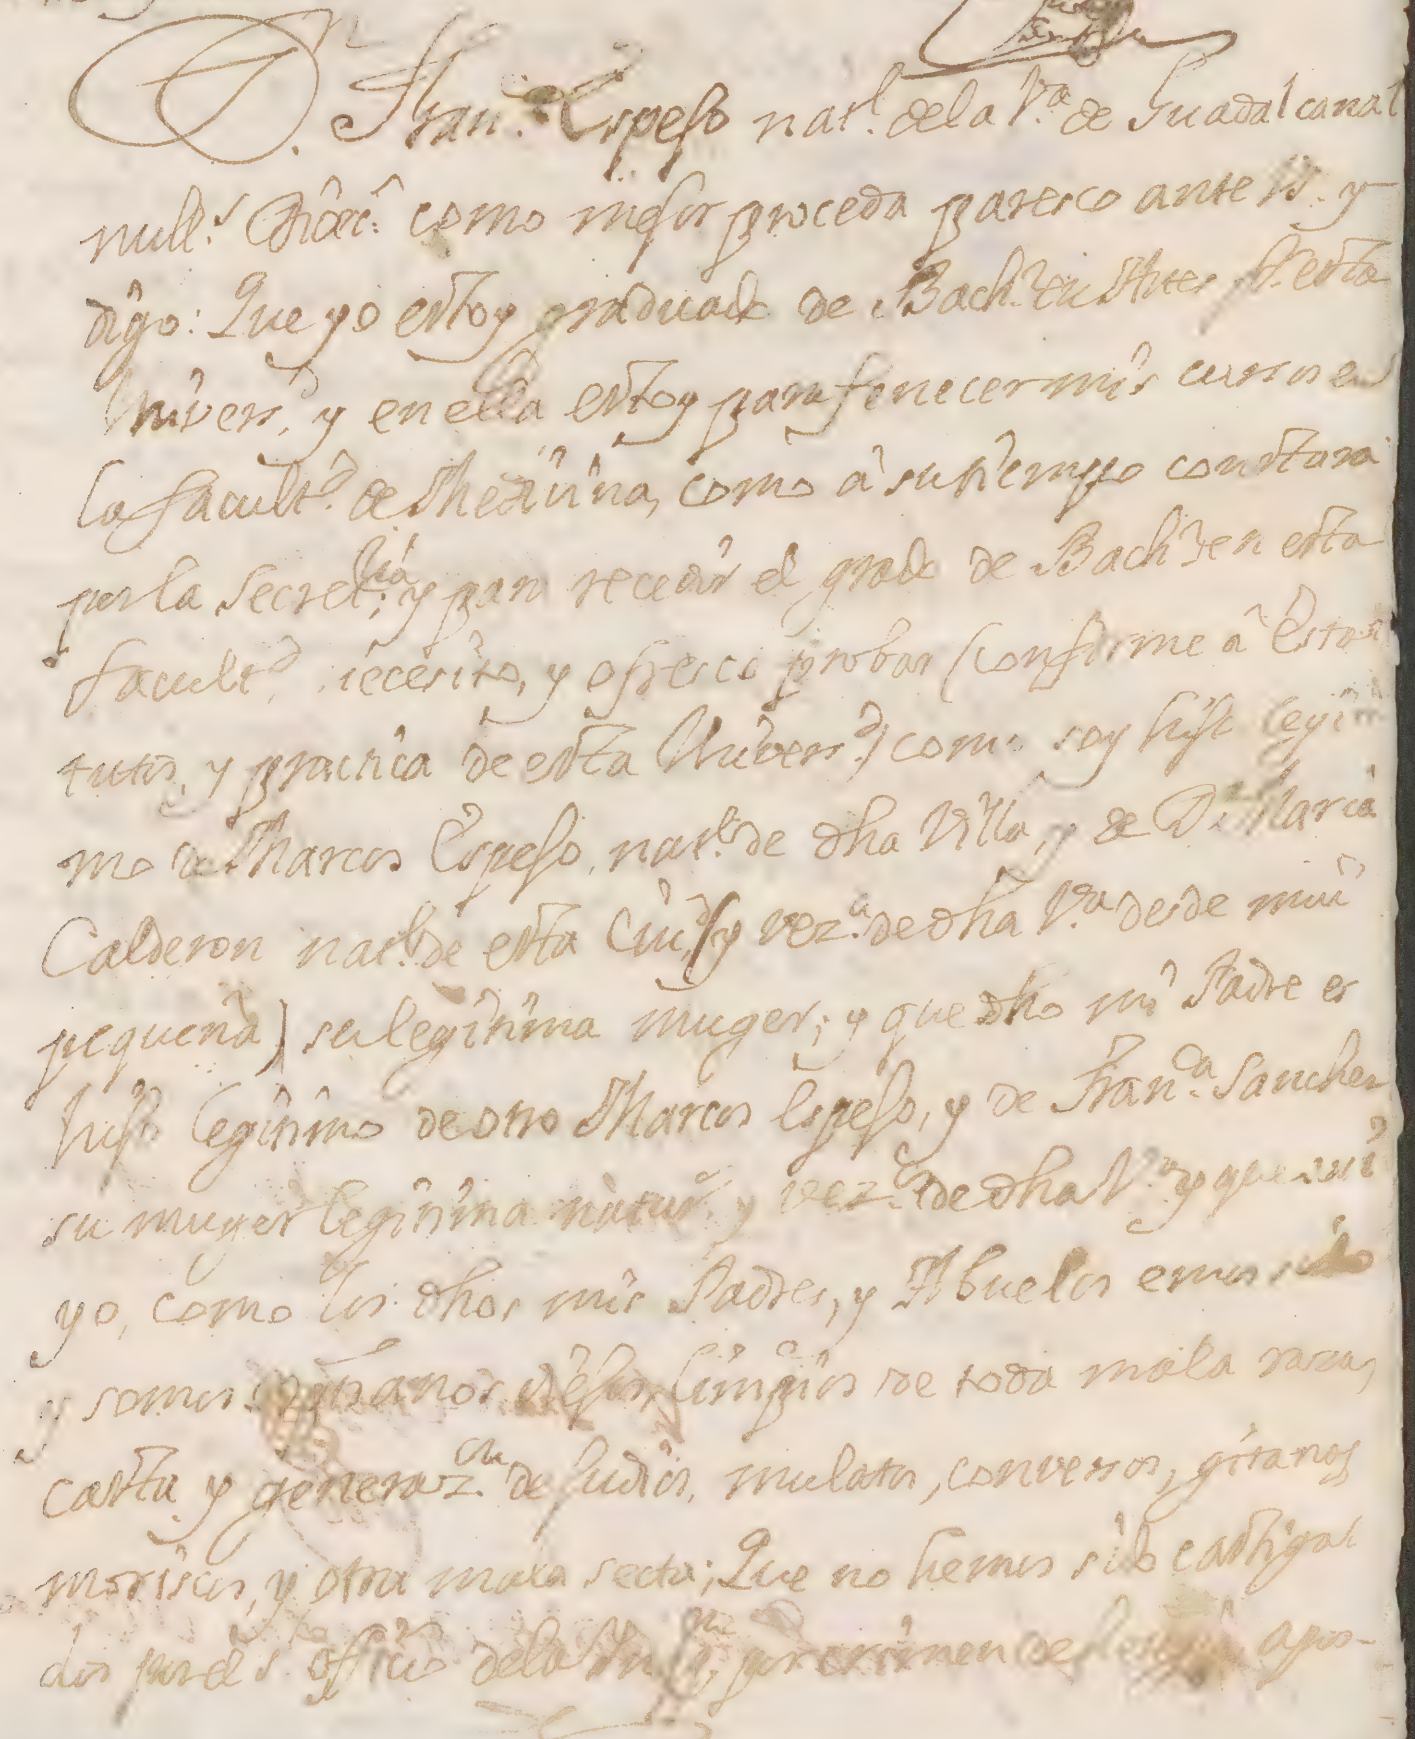 D. Fran.co Espeso nat.l de la V.a de Guadalcanal
null.s Dioec.s como mejor proceda paresco ante VS. y
digo: Que yo estoy graduado de Bach.r en Artes p.r esta
Univers.d y en ella estoy para fenecer mis cursos en
la facult.d de Medicina, como â su tiempo constara
por la Secret.ria; y para recevir el grado de Bach.r en esta
facult.d necesito, y ofresco probar (conforme â Esta-
tutos, y practica de esta Univers.d) como soy hijo legiti-
mo de Marcos Espeso, nat.l de dha Villa, y de D.a Maria
Calderon nat.l de esta Ciu.d (y vez.a de dha V.a desde mui
pequeña) su legitima muger; y que dho mi Padre es
hijo legitimo de otro Marcos Espeso, y de Fran.ca Sanchez
su muger legitima natur.s y vez.s de dha V.a y que assi
yo, como los dhos mis Padres, y Abuelos emos sido
y somos xptianos viejos, limpios de toda mala raza,
casta y generaz.on de Judios, mulatos, conversos, gitanos
moriscos, y otra mala secta; Que no hemos sido castiga-
dos por el S.to Officio de la Inq.on por crimen de apos-